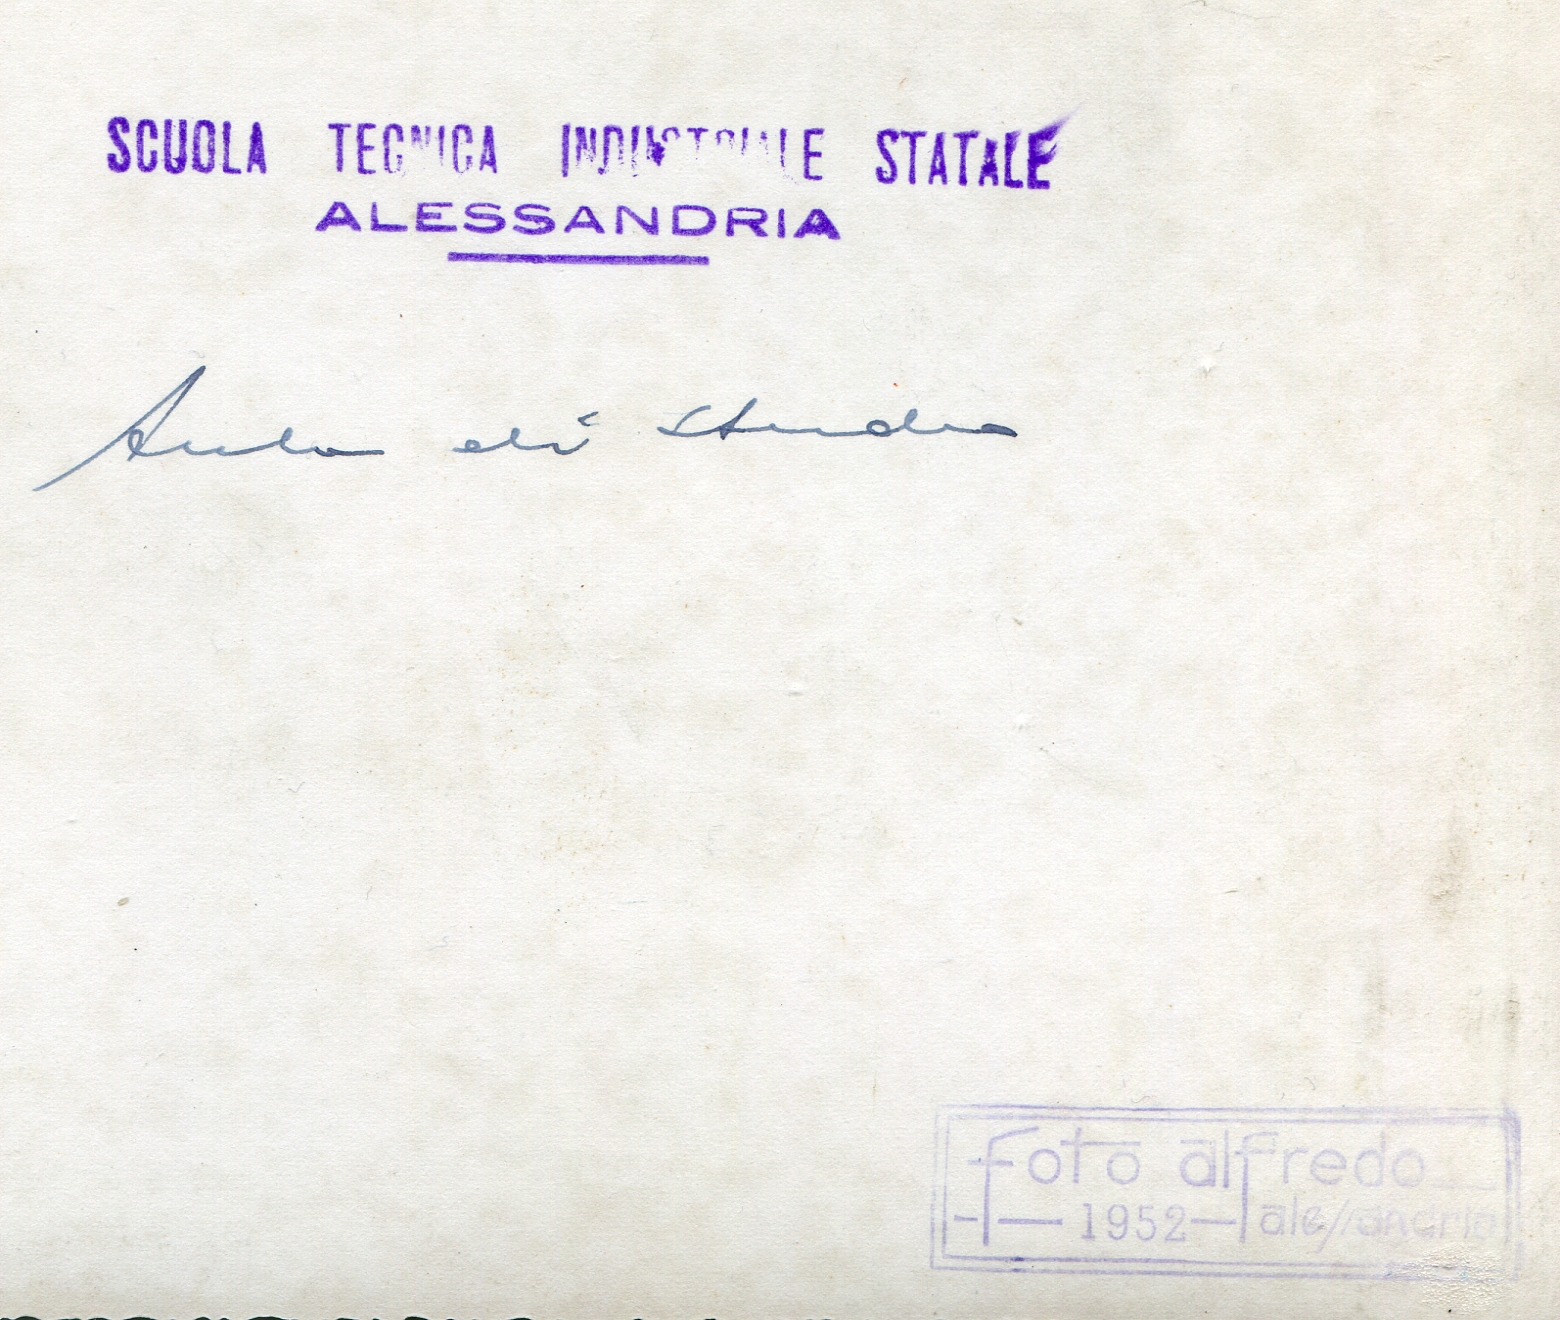 SCUOLA TECNICA INDUSTRIALE STATALE
ALESSANDRIA
Aula di studio
foto alfredo
1952 alessandria